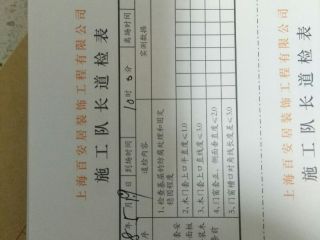 上海百安居装饰工程有限公司
施工队长道检表
月19日 到场时间 10时0分 离场时间
序 道检内容 实测数据
1、检查基层的防腐处理和固定
稳固程度
2、木门套上口平直度≤1.0
3、木门套上口直线度≤3.0
4、门窗套正、侧面垂直度≤2.0
5、门窗樘口对角线长度差≤3.0
上海百安居装饰工程有限公司
施工队长道检表